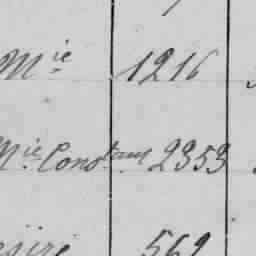 Mie 1216
Mie Constant 2353
ésiré 562